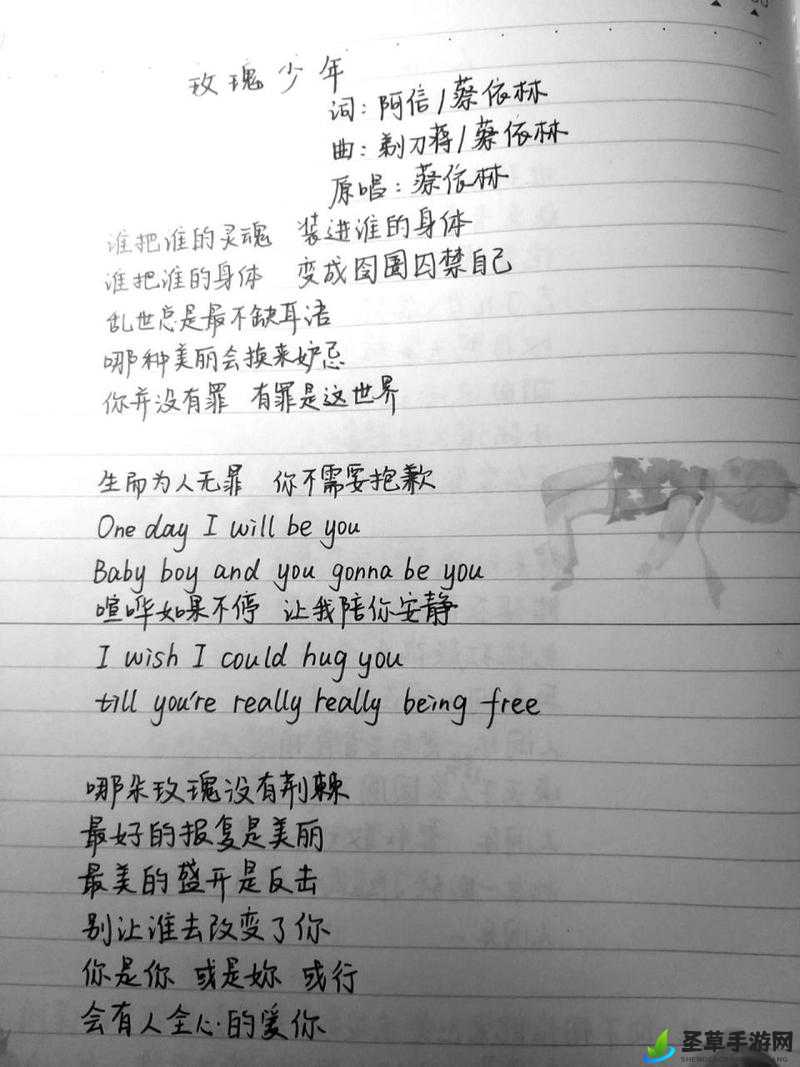 玫瑰少年
词：阿信/蔡依林
曲：剃刀蒋/蔡依林
原唱：蔡依林
谁把谁的灵魂 装进谁的身体
谁把谁的身体 变成囹圄囚禁自己
乱世总是最不缺耳语
哪种美丽会换来妒忌
你并没有罪 有罪是这世界
生而为人无罪 你不需要抱歉
One day I will be you
Baby boy and you gonna be you
喧哗如果不停 让我陪你安静
I wish I could hug you
till you're really really being free
哪朵玫瑰没有荆棘
最好的报复是美丽
最美的盛开是反击
别让谁去改变了你
你是你 或是妳 或行
会有人全心的爱你
圣草手游网